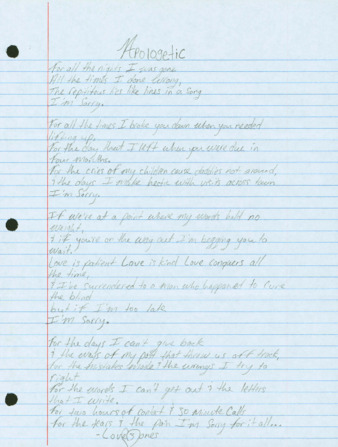 Apologetic
For all the nights I was gone
All the times I done wrong,
The repetitive lies like lines in a song
I'm Sorry.
For all the times I broke you down when you needed
lifting up,
For the day that I left when you were due in
four months.
For the cries of my children cause daddies not around,
& the days I make home with us across town
I'm Sorry.
If we're at a point where my words hold no
weight,
& if you're on the way out I'm begging you to
wait.
Love is patient Love is kind Love conquers all
the time,
& I've surrendered to a man who happened to cure
the blind
but if I'm too late
I'm Sorry.
For the days I can't give back
& the of my past that threw us off track,
for the mistakes & the wrongs I try to
right
For the words I can't get out & the letters
that I write.
For four hours of & 30 minute calls
For the tears & the pain I'm sorry for it all...
- Love Jones